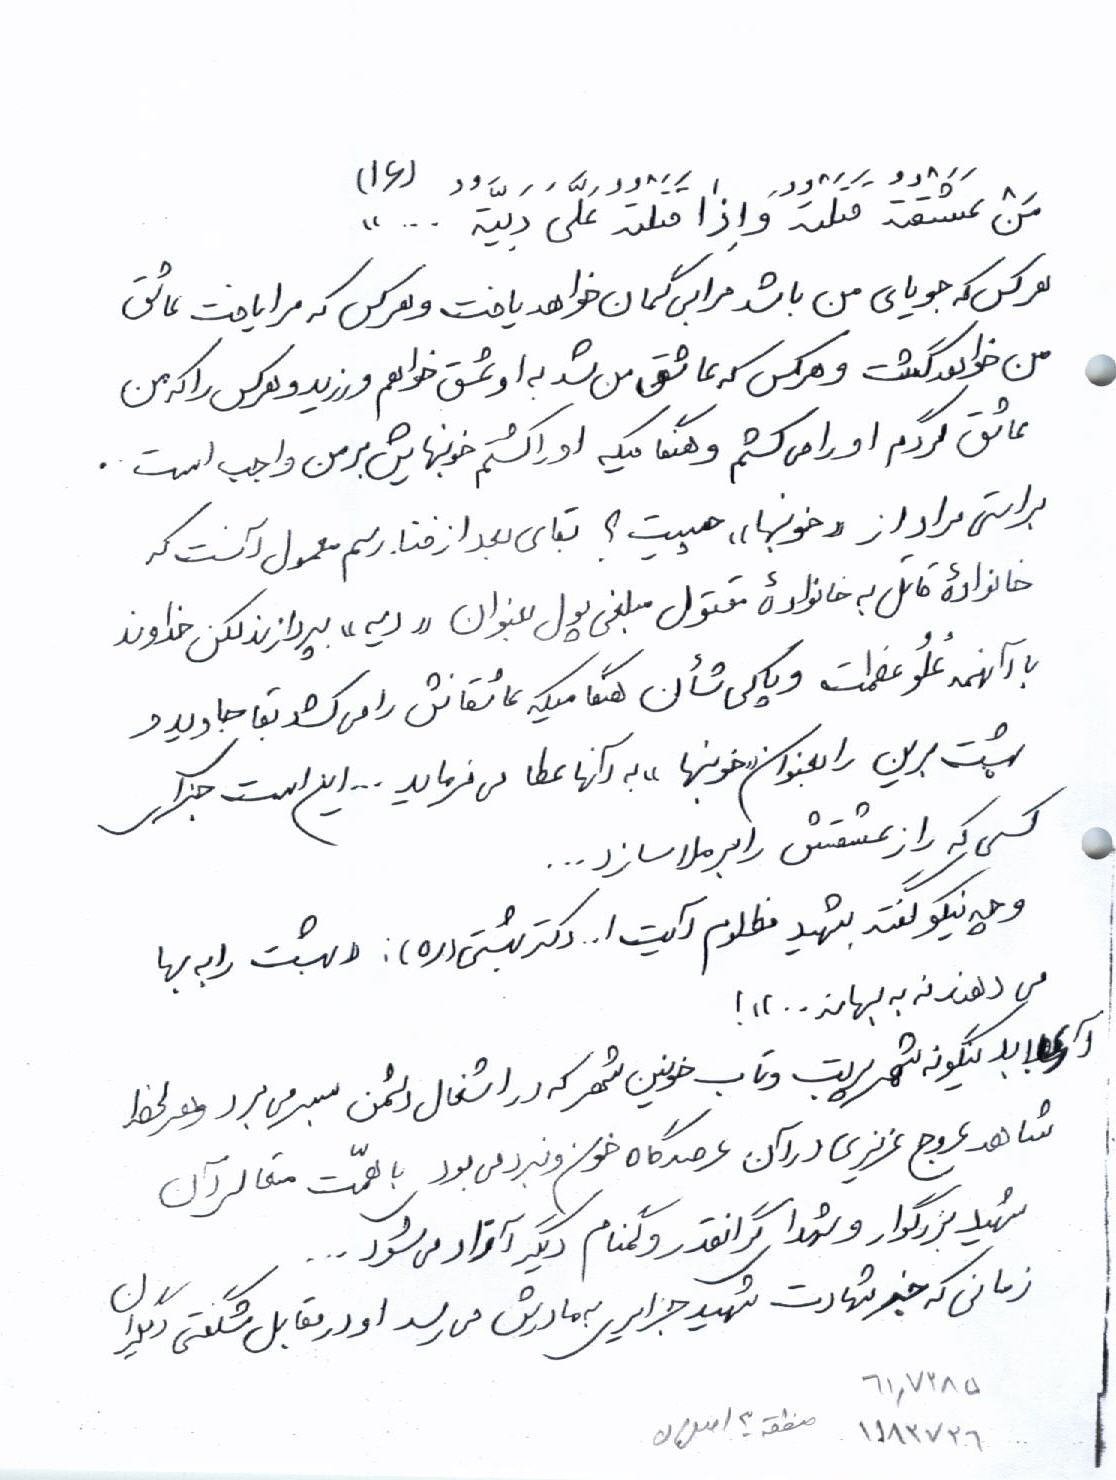 (۱۶)
مَنْ عَشَقَتهُ قَتَلتُهُ وَاِذٰا قَتَلتهُ عَلَیَّ دِیَّتهُ ...»
هرکس که جویای من باشد مرا بی گمان خواهد یافت و هرکس که مرا یافت عاشق
من خواهد گشت و هرکس که عاشق من شد به او عشق خواهم ورزید و هرکس را که من
عاشق گردم او را می کشم و هنگامیکه او را کشتم خونبهایش بر من واجب است ..
براستی مراد از «خونبها» چیست؟ بقای بعد از فنا. رسم معمول آنست که
خانوادهٔ قاتل به خانوادهٔ مقتول مبلغی پول بعنوان «دیه» بپردازند لکن خداوند
با آنهمه عُلُو عظمت و پاکی شأن هنگامیکه عاشقانش را می کشد بقا جاوید و
بهشت برین را بعنوان «خونبها» به آنها عطا می فرماید ... این است جزای
کسی که راز عشقش را برملا سازد ...
و چه نیکو گفته شهید مظلوم آیت ا.. دکتر بهشتی (ره): «بهشت را به بها
می دهند نه به بهانه ...»!
اینگونه شهر پرتب و تاب خونین شهر که در اشغال دشمن بسر می برد و هر لحظه
شاهد عروج عزیزی در آن عرصه گاه خون و نبرد می بود با همّت متعالی آن
شهید بزرگوار و شهدای گرانقدر و گمنام دیگر آزاد می شود ...
زمانی که خبر شهادت شهید جزایری به مادرش می رسد او در مقابل شگفتی دیگران
۶۱٫۷۲۸۵
۱۱۸۳۷۲۶ منطقه ۳ اصفهان